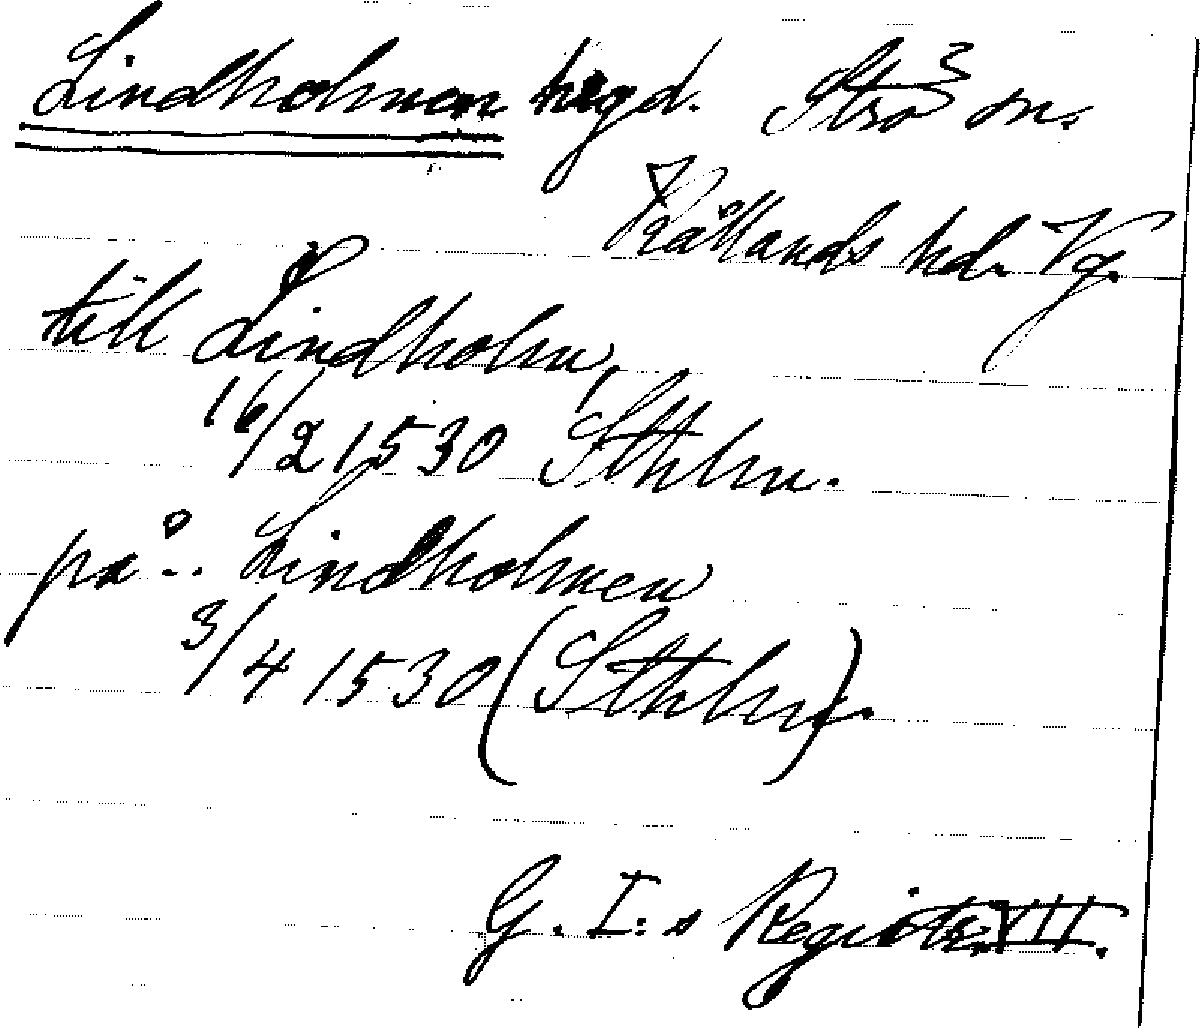 Lindholmen hrgd. Strö sn.
Kållands hd. Vg.
till Lindholm,
16/2 1530 Sthlm.
på .. Lindholmen
3/4 1530 (Sthlm).
G. I:s Registr. VII.